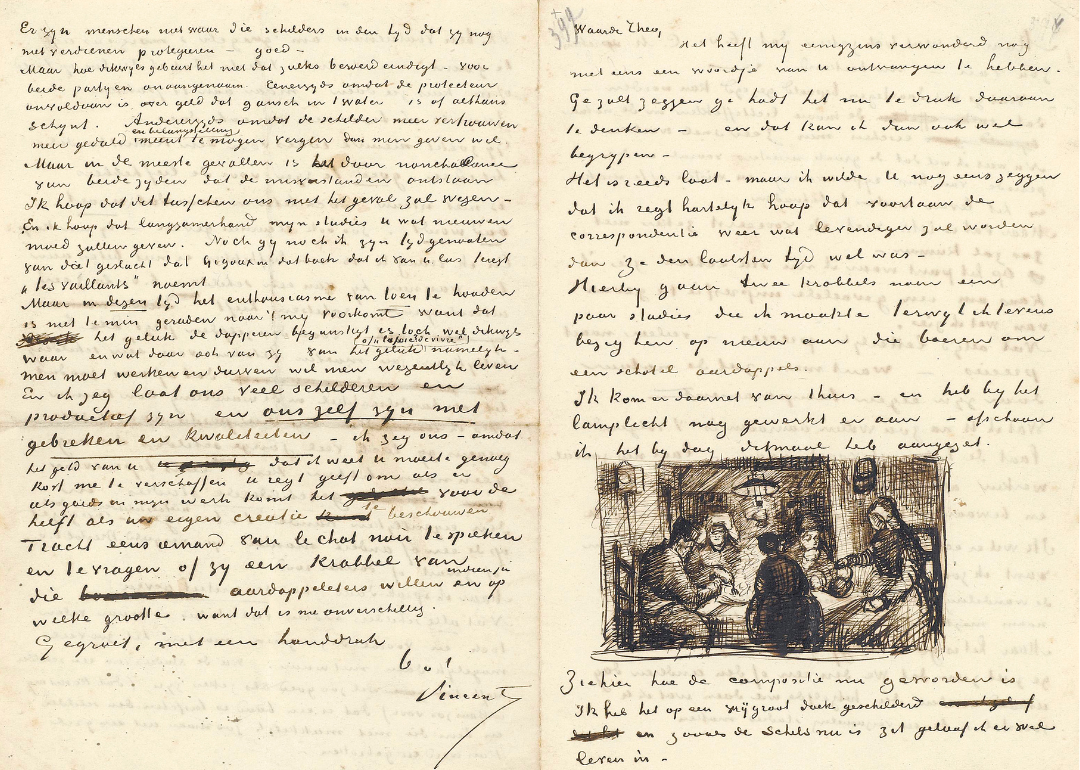 Er zyn menschen niet waar die schilders in den tyd dat zy nog
niet verdienen protegeren – goed –
Maar hoe dikwyls gebeurt het niet dat zulks beroerd eindigt – voor
beide partyen onaangenaam. Eenerzyds omdat de protecteur
onvoldaan is over geld dat gansch in 't water is of althans
schynt. Anderzyds omdat de schilder meer vertrouwen
en belangstelling
meer geduld meent te mogen vergen dan men geven wil.
Maar in de meeste gevallen is het door nonchalance
van beide zyden dat de misverstanden ontstaan
Ik hoop dat dit tusschen ons niet het geval zal wezen –
En ik hoop dat langzamerhand myn studies u wat nieuwen
moed zullen geven. Noch gy noch ik zyn tydgenooten
van die geslacht dat Gigoux in dat boek dat ik van u las teregt
„les vaillants" noemt
Maar in dezen tyd het enthousiasme van toen te houden
is niet te min geraden naar 't my voorkomt want dat
het geluk de dapperen begunstigt is toch wel dikwyls
waar en wat daar ook van zy van het geluk (of „la joie de vivre") namelyk –
men moet werken en durven wil men wezentlyk leven
En ik zeg laat ons veel schilderen en
productief zyn en ons zelf zyn met
gebreken en kwaliteiten – ik zeg ons – omdat
het geld van u dat ik weet u moeite genoeg
kost me te verschaffen u regt geeft om als er
iets goeds in myn werk komt het voor de
helft als uw eigen creatie te beschouwen
Tracht eens iemand van le chat noir te spreken
en te vragen of zy een krabbel van
die aardappeleters willen en zoo ja op
welke grootte. want dat is me onverschillig.
Gegroet, met een handdruk
t. à t.
Vincent
Waarde Theo,
Het heeft my eenigzins verwonderd nog
niet eens een woordje van u ontvangen te hebben.
Ge zult zeggen ge hadt het nu te druk daaraan
te denken – en dat kan ik dan ook wel
begrypen –
Het is reeds laat – maar ik wilde u nog eens zeggen
dat ik regt hartelyk hoop dat voortaan de
correspondentie weer wat levendiger zal worden
dan ze den laatsten tyd wel was –
Hierby gaan twee krabbels naar een
paar studies die ik maakte terwyl ik tevens
bezig ben op nieuw aan die boeren om
een schotel aardappels.
Ik kom er daarnet van thuis – en heb by het
lamplicht nog gewerkt er aan – ofschoon
ik het by dag ditmaal heb aangezet.
Ziehier hoe de compositie nu geworden is
Ik heb het op een vry groot doek geschilderd
en zooals de schets nu is zit geloof ik er wel
leven in –